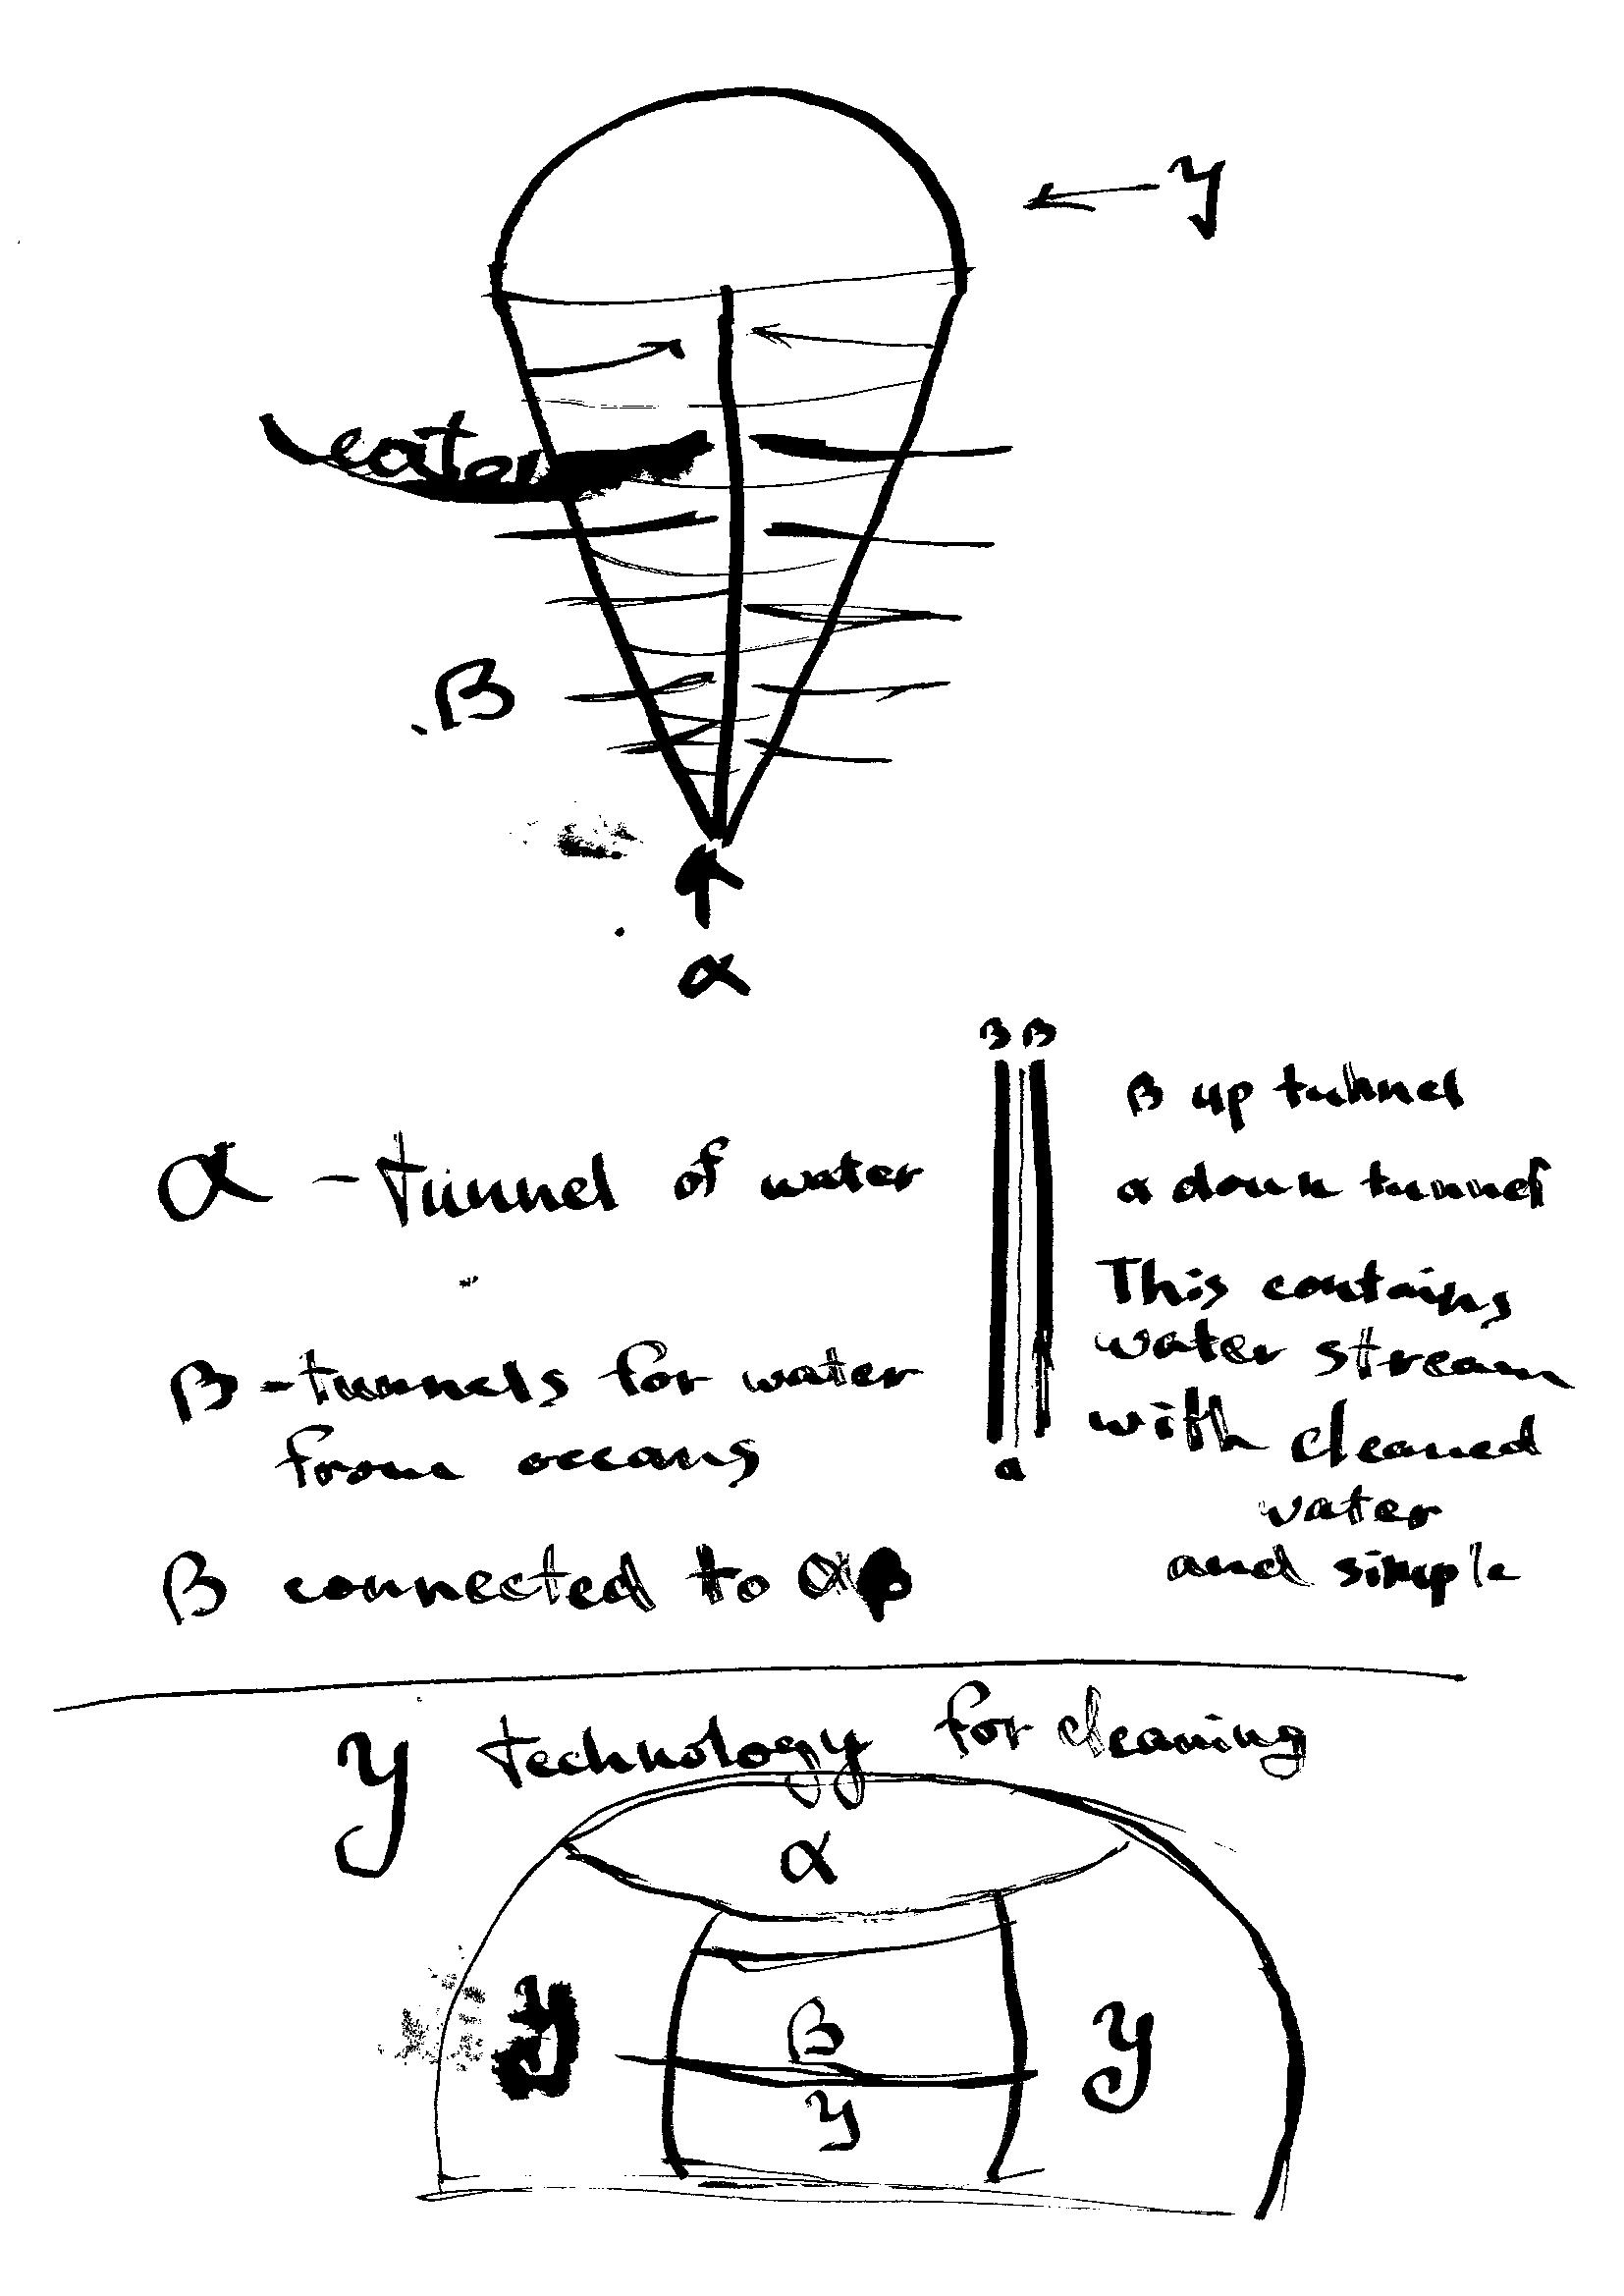 y
water
B
α
B B
α - tunnel of water
B - tunnels for water
from oceans
B connected to αB
a
B up tunnel
α down tunnel
This contains
water stream
with cleaned
water
and simple
y technology for cleaning
α
y
B
y
y